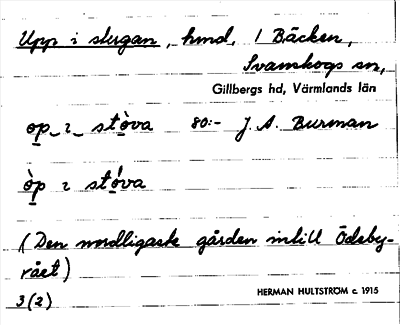 Upp i stugan, hmd, 1 Bäcken,
Svanskogs sn,
Gillbergs hd, Värmlands län
op_ ɩ_ stòva 80:- J. A. Burman
òp ɩ stóva
(Den nordligaste gården intill Ödeby-
rået)
3(2)
HERMAN HULTSTRÖM c. 1915